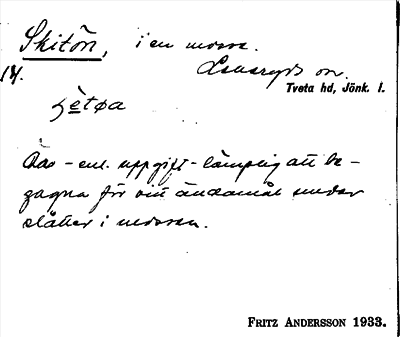 Skitön, i en mosse.
14.
Lannaryds sn.
Tveta hd, Jönk. l.
Öas - enl. uppgift - lämplig att be-
gagna för sitt ändamål under
slåtter i mossen.
FRITZ ANDERSSON 1933.